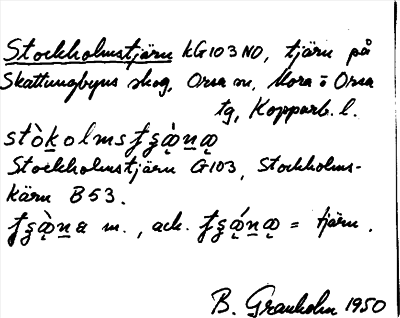 Stockholmstjärn KG103 NO, tjärn på
Skattungbyns skog, Orsa sn, Mora o Orsa
tg, Kopparb. l.
Stockholmstjärn G103, Stockholms-
kärn B53.
m., ack. = tjärn.
B. Granholm 1950